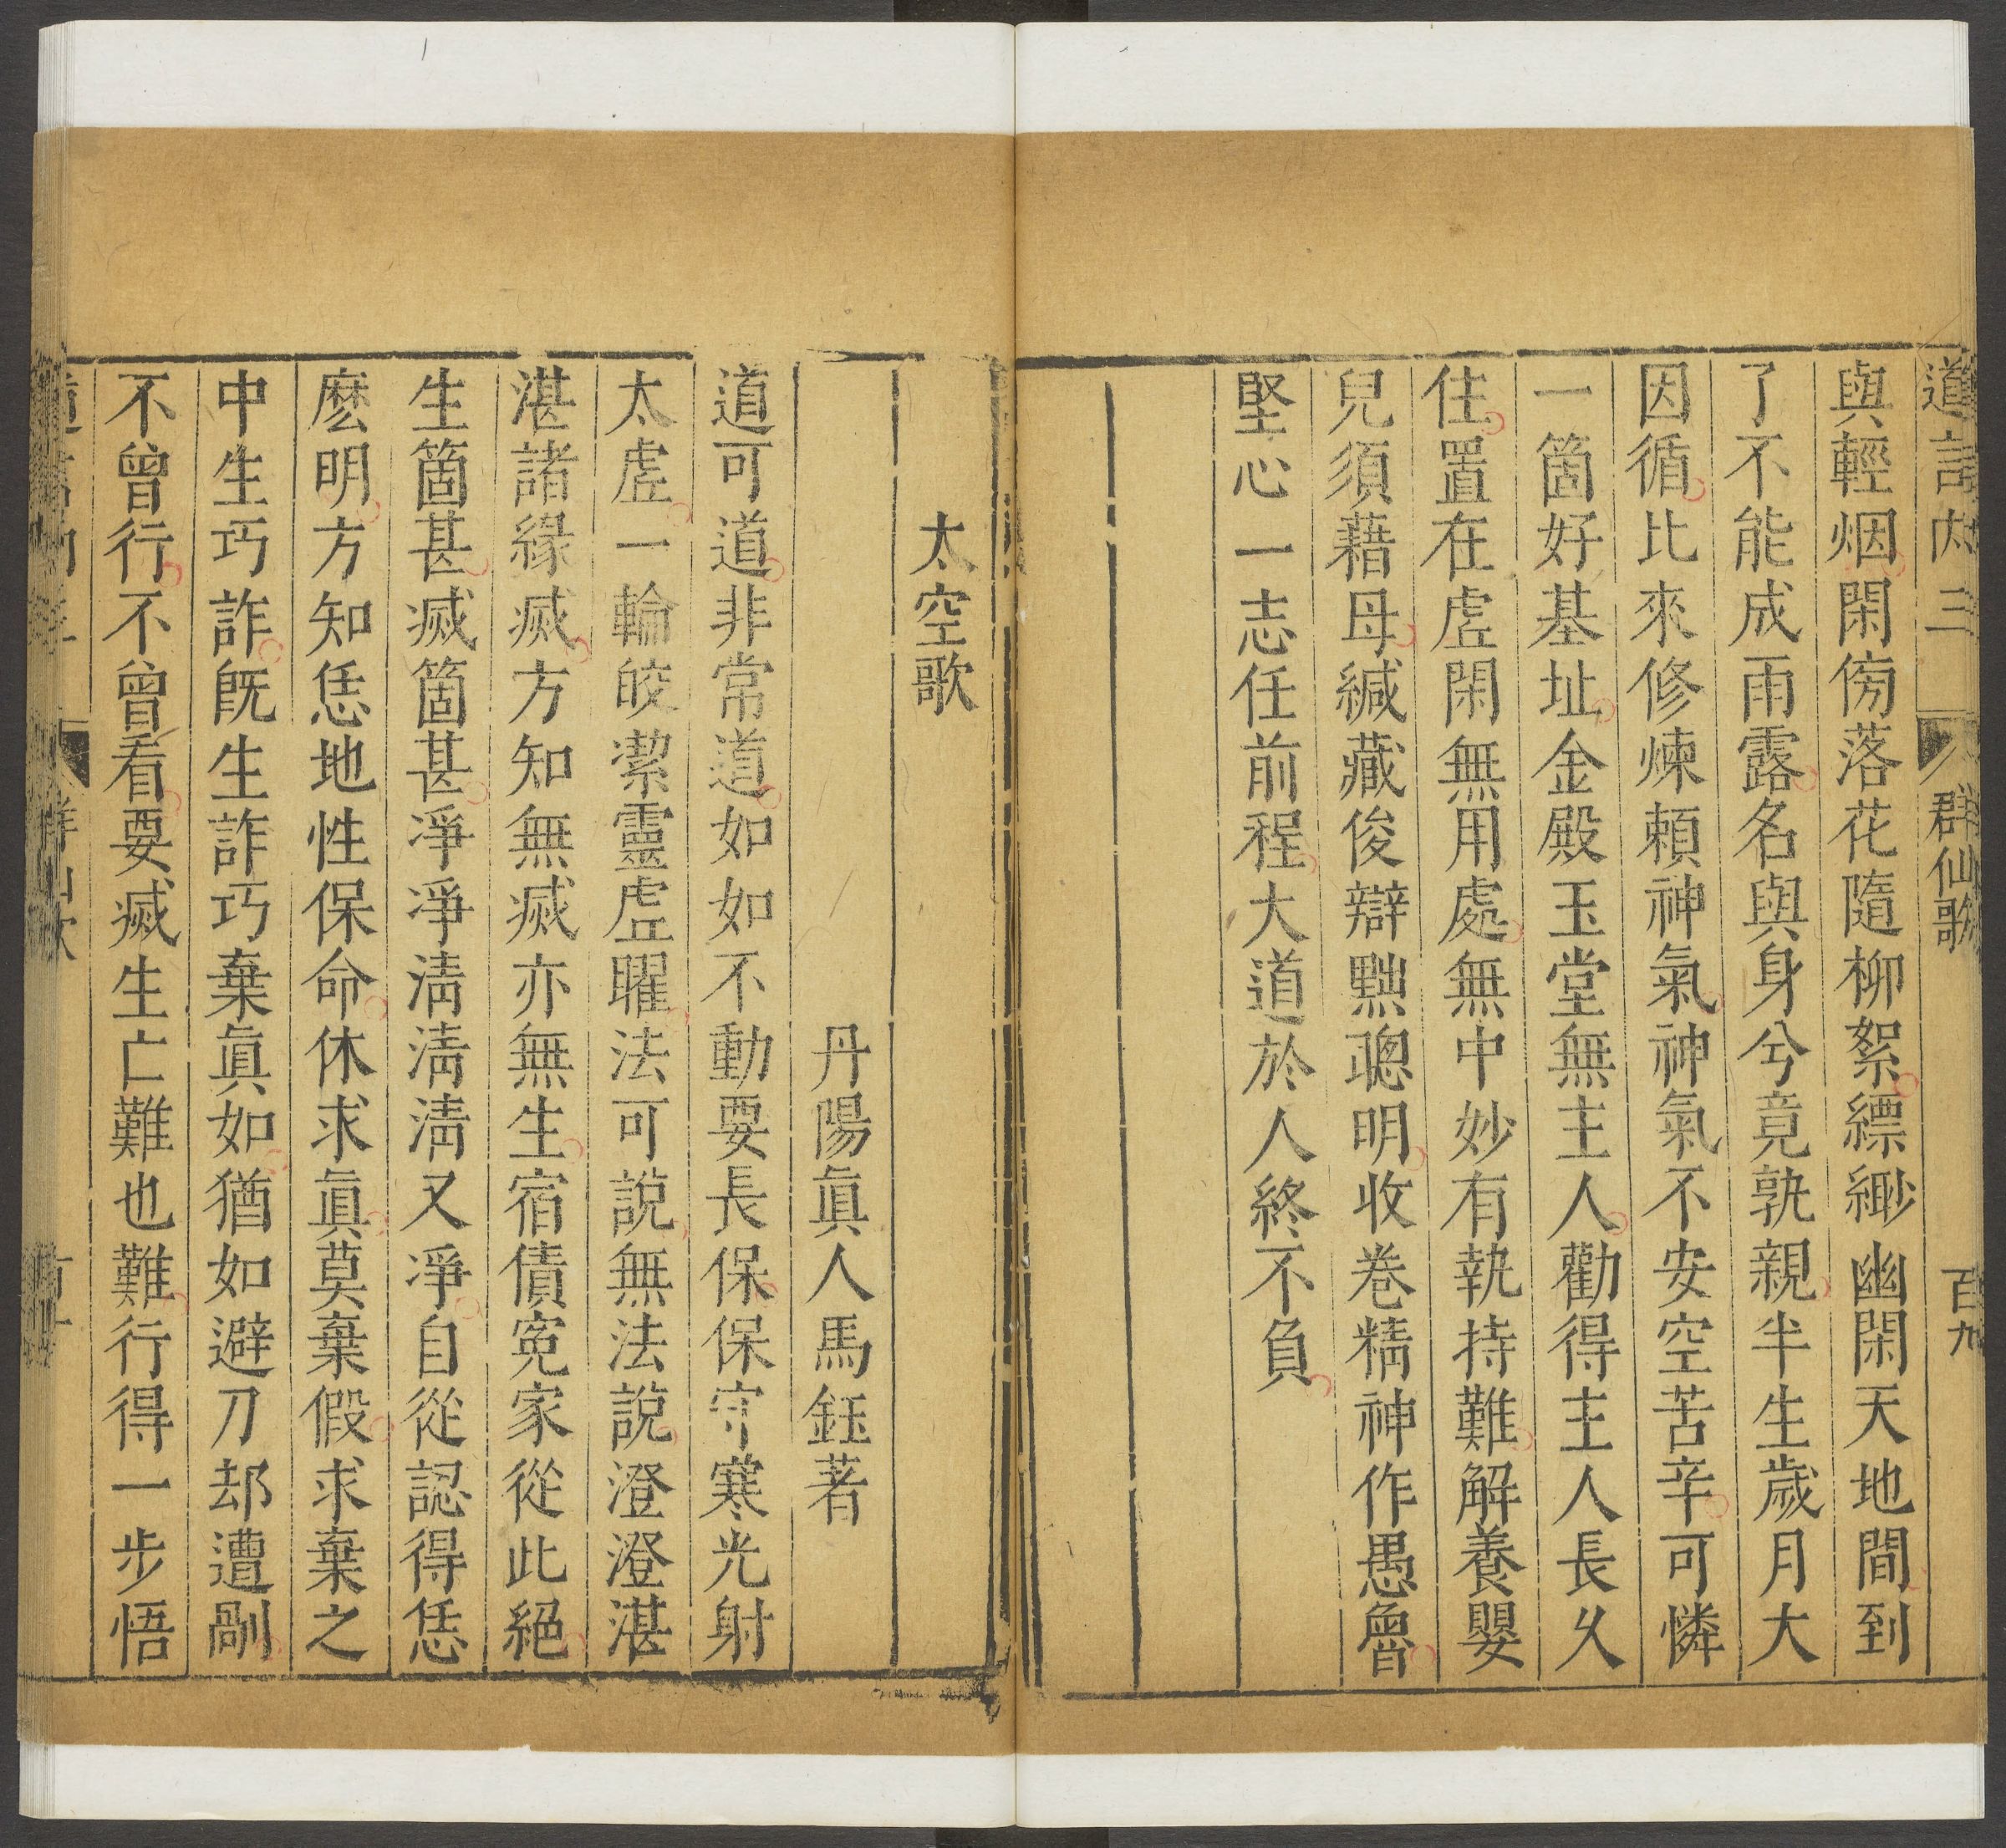 道言内三 群仙歌 百九
與輕烟閑傍落花隨柳絮縹緲幽閑天地間到
了不能成雨露名與身兮竟孰親半生歲月大
因循比來修煉頼神氣神氣不安空苦辛可憐
一箇好基址金殿玉堂無主人勸得主人長久
住置在虗閑無用處無中妙有執持難解養嬰
兒須藉母緘藏俊辯黜聰明收卷精神作愚魯
堅心一志任前程大道於人終不負
太空歌
丹陽眞人馬鈺著
道可道非常道如如不動要長保保守寒光射
太虗一輪皎潔靈虗曜法可說無法說澄澄湛
湛諸緣㓕方知無㓕亦無生宿債寃家從此絕
生箇甚㓕箇甚凈凈淸淸淸又凈自從認得恁
麽明方知恁地性保命休求眞莫棄假求棄之
中生巧詐旣生詐巧棄眞如猶如避刀却遭剮
不曾行不曾看要㓕生亡難也難行得一步悟